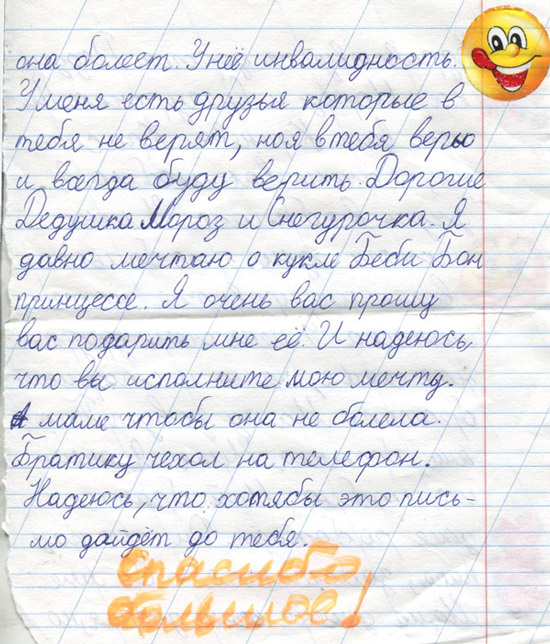 она болеет. У неё инвалидность.
У меня есть друзья которые в
тебя не верят, ноя втебя верю
и всегда буду верить. Дорогие
Дедушка Мороз и Снегурочка. Я
давно мечтаю о кукле Беби Бон
принцессе. Я очень вас прошу
вас подарить мне её. И надеюсь,
что вы исполните мою мечту.
А маме чтобы она не болела.
Братику чехол на телефон.
Надеюсь, что хотябы это пись-
мо дайдёт до тебя.
Спасибо
большое!